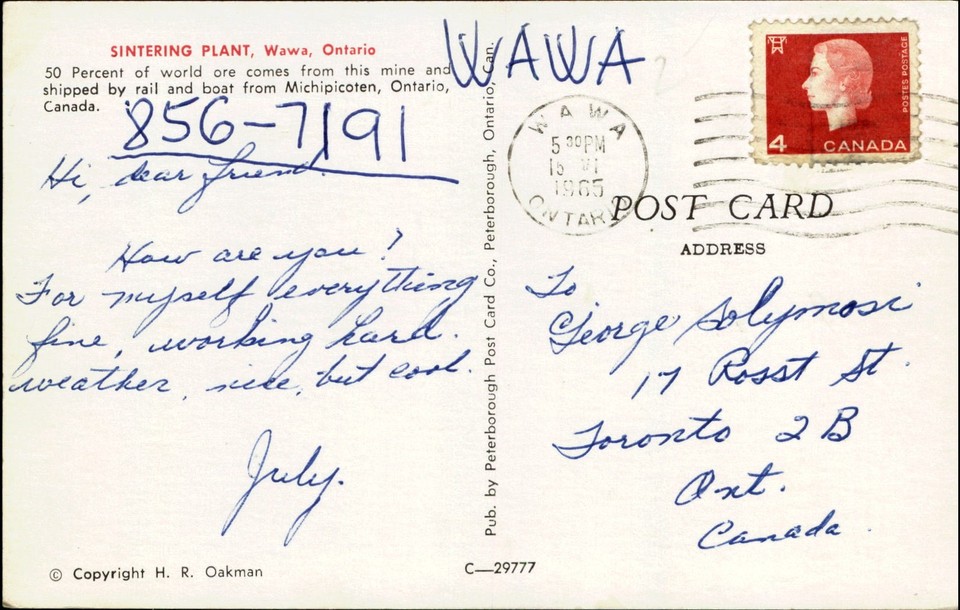 SINTERING PLANT, Wawa, Ontario
50 Percent of world ore comes from this mine and
shipped by rail and boat from Michipicoten, Ontario,
Canada.
WAWA
856-7191
Hi, dear friend.
How are you?
For myself everything
fine, working hard.
weather, nice, but cool.
July.
© Copyright H. R. Oakman
Pub. by Peterborough Post Card Co., Peterborough, Ontario, Can.
C—29777
WAWA
5 30PM
15 VI
1965
ONTARIO
4 CANADA
POSTES POSTAGE
POST CARD
ADDRESS
To
George Solymosi
17 Rosst St.
Toronto 2B
Ont.
Canada